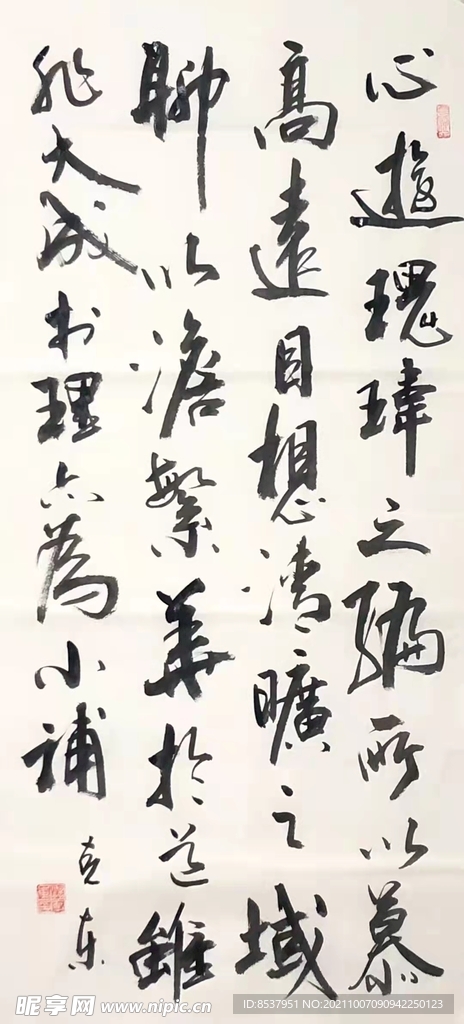 心遊瑰瑋之編所以慕
高遠目想清曠之域
聊以澹繁華於道雖
非大成於理亦為小補
克東
昵享网 www.nipic.cn
ID:8537951 NO:20211007090942250123